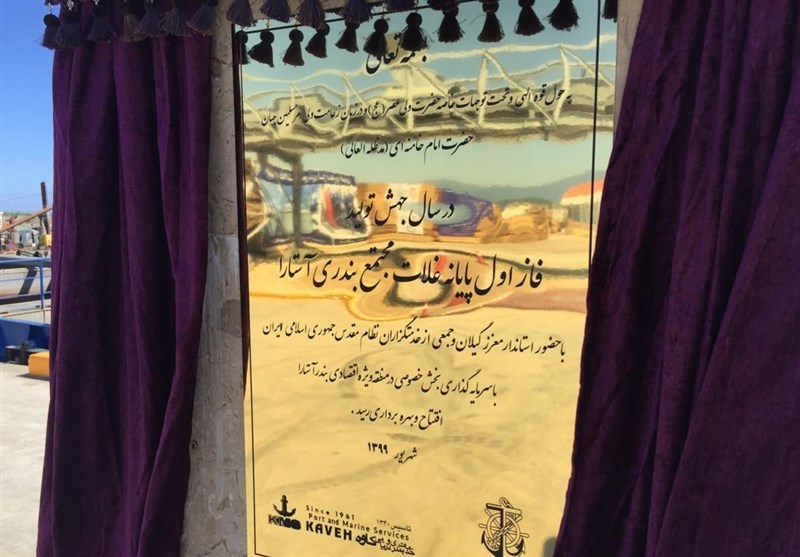 بسمه تعالی
به حول قوه الهی و تحت توجهات خاصه حضرت ولی عصر (عج) و در زمان زعامت ولی امر مسلمین جهان
حضرت امام خامنه ای (مدظله العالی)
در سال جهش تولید
فاز اول پایانه غلات مجتمع بندری آستارا
با حضور استاندار معزز گیلان و جمعی از خدمتگزاران نظام مقدس جمهوری اسلامی ایران
با سرمایه گذاری بخش خصوصی در منطقه ویژه اقتصادی بندر آستارا
افتتاح و بهره برداری رسید .
شهریور ۱۳۹۹
Since 1961
Port and Marine Services
KAVEH
تاسیس ۱۳۴۰
کاوه